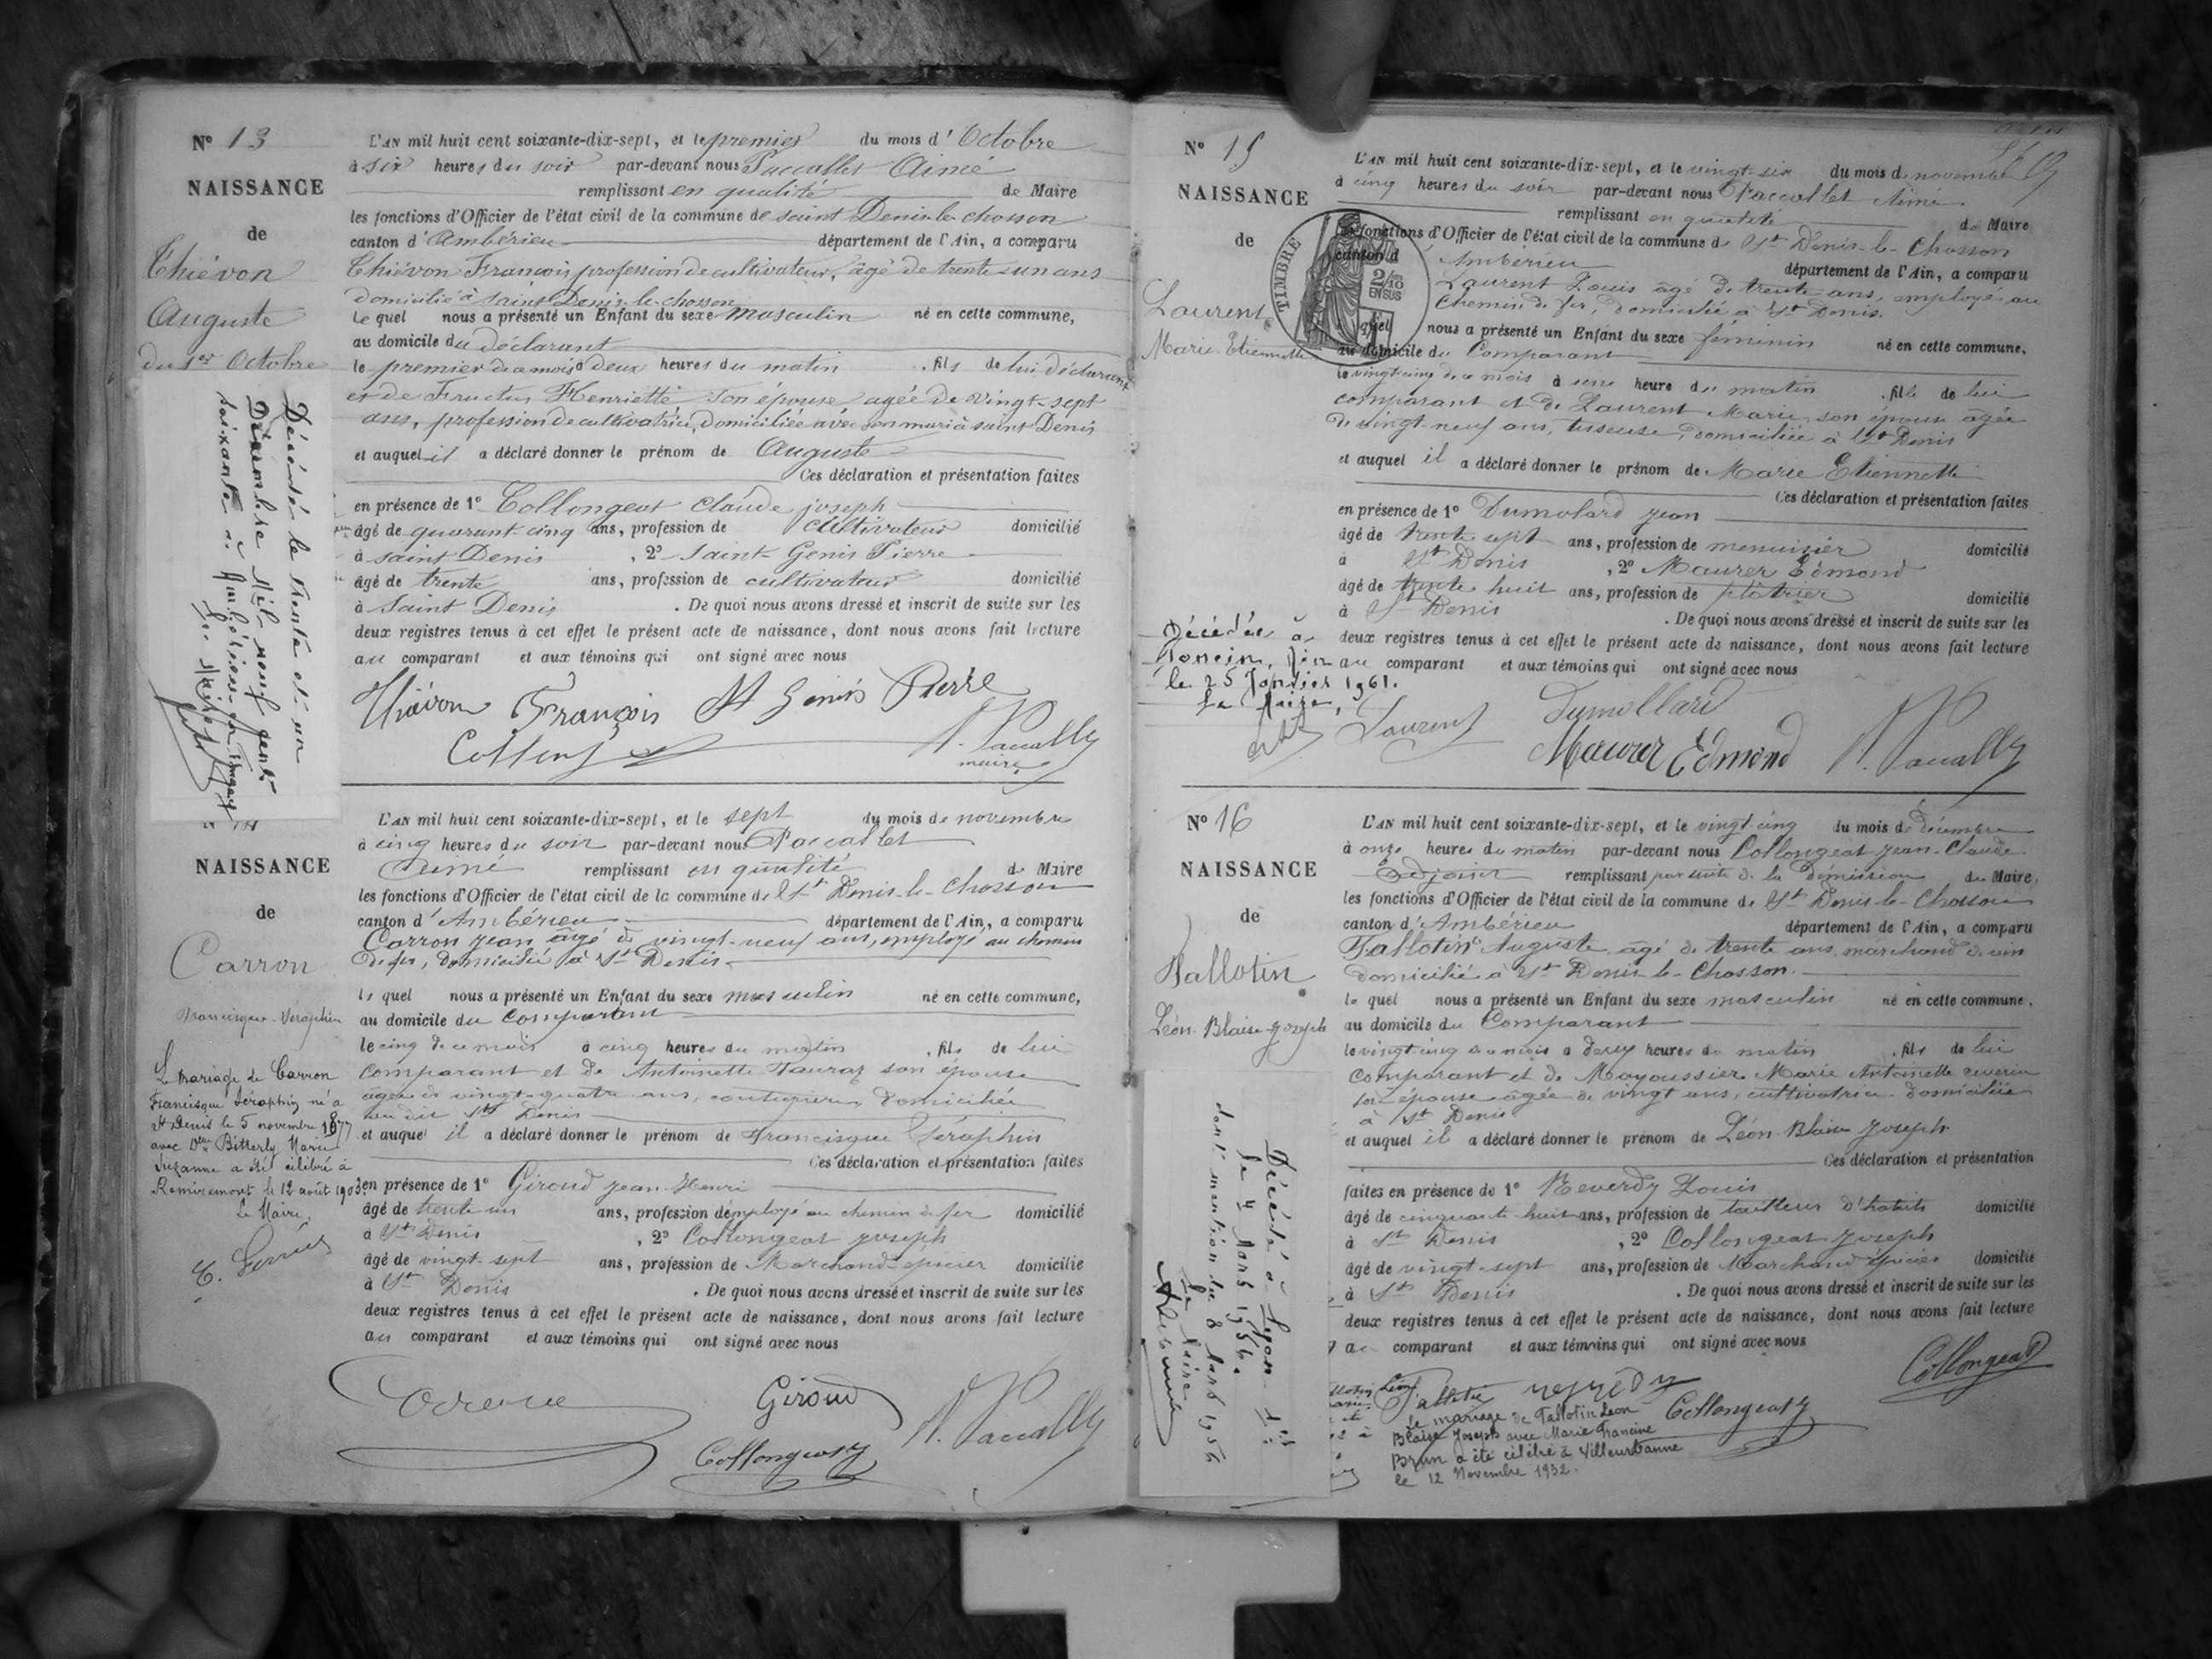 N° 13
NAISSANCE
de
Thiévon
Auguste
du 1er Octobre
L'AN mil huit cent soixante-dix-sept, et le premier du mois d'Octobre
à six heures du soir par-devant nous Paccallet Aimé
remplissant en qualité de Maire
les fonctions d'Officier de l'état civil de la commune de saint Denis-le-chosson
canton d'Ambérieu département de l'Ain, a comparu
Thiévon François profession de cultivateur, âgé de trente-un ans
domicilié à saint Denis-le-chosson
Le quel nous a présenté un Enfant du sexe masculin né en cette commune,
au domicile du déclarant
le premier de ce mois à deux heures du matin, fils de lui déclarant
et de Fructus Henriette son épouse agée de vingt-sept
ans, profession de cultivatrice, domiciliée avec son mari à saint Denis
et auquel il a déclaré donner le prénom de Auguste
Ces déclaration et présentation faites
en présence de 1° Collongeat Claude joseph
âgé de quarant-cinq ans, profession de cultivateur domicilié
à saint Denis, 2° Saint Genis Pierre
âgé de trente ans, profession de cultivateur domicilié
à Saint Denis. De quoi nous avons dressé et inscrit de suite sur les
deux registres tenus à cet effet le présent acte de naissance, dont nous avons fait lecture
au comparant et aux témoins qui ont signé avec nous
Thiévon François St Genis Pierre
A. Paccally
maire
Décédé le trente et un
Décembre Mil neuf cent
soixante à Ambérieu-en-Bugey
Le Maire
NAISSANCE
de
Carron
Francisque-Séraphin
L'AN mil huit cent soixante-dix-sept, et le sept du mois de novembre
à cinq heures du soir par-devant nous Paccallet
Aimé remplissant en qualité de Maire
les fonctions d'Officier de l'état civil de la commune de St Denis-le-Chosson
canton d'Ambérieu département de l'Ain, a comparu
Carron jean âgé de vingt-neuf ans, employé au chemin
de fer, domicilié à St Denis
le quel nous a présenté un Enfant du sexe masculin né en cette commune,
au domicile du Comparant
le cinq de ce mois à cinq heures du matin, fils de lui
Comparant et de Antoinette Tauraz son épouse
agée de vingt-quatre ans, couturière domiciliée
St Denis
et auquel il a déclaré donner le prénom de Francisque Séraphin
Ces déclaration et présentation faites
en présence de 1° Giroud jean-Henri
âgé de trente un ans, profession d'employé au chemin de fer domicilié
à St Denis, 2° Collongeat joseph
âgé de vingt-sept ans, profession de Marchand-épicier domicilié
à St Denis. De quoi nous avons dressé et inscrit de suite sur les
deux registres tenus à cet effet le présent acte de naissance, dont nous avons fait lecture
au comparant et aux témoins qui ont signé avec nous
Giroud
A. Paccally
Le mariage de Carron
Francisque Séraphin né à
St Denis le 5 novembre 1877
avec Dlle Bitterly Marie
Suzanne a été célébré à
Remiremont le 12 août 1903
Le Maire,
N° 15
NAISSANCE
de
Laurent
Marie-Etiennette
TIMBRE
2/10
EN SUS
L'AN mil huit cent soixante-dix-sept, et le vingt-six du mois de novembre
à cinq heures du soir par-devant nous Paccallet Aimé
remplissant en qualité de Maire
les fonctions d'Officier de l'état civil de la commune de St Denis-le-Chosson
canton d'Ambérieu département de l'Ain, a comparu
Laurent Louis âgé de trente ans, employé au
Chemin de fer, domicilié à St Denis.
quel nous a présenté un Enfant du sexe féminin né en cette commune.
au domicile du Comparant
le vingt-cinq de ce mois à une heure du matin, fille de lui
comparant et de Laurent Marie, son épouse âgée
de vingt neuf ans, tisseuse, domiciliée à St Denis
et auquel il a déclaré donner le prénom de Marie Etiennette
Ces déclaration et présentation faites
en présence de 1° Dumolard jean
âgé de trente sept ans, profession de menuisier domicilié
à St Denis, 2° Maurer Edmond
âgé de trente huit ans, profession de plâtrier domicilié
à St Denis. De quoi nous avons dressé et inscrit de suite sur les
deux registres tenus à cet effet le présent acte de naissance, dont nous avons fait lecture
au comparant et aux témoins qui ont signé avec nous
Laurent Dumollard
Maurer Edmond A. Paccally
Décédée à
Poncin, Ain
le 25 Janvier 1961.
Le Maire,
N° 16
NAISSANCE
de
Tallotin
Léon-Blaise-Joseph
L'AN mil huit cent soixante-dix-sept, et le vingt-cinq du mois de décembre
à onze heures du matin par-devant nous Collongeat jean-Claude
Adjoint remplissant par suite de la démission du Maire.
les fonctions d'Officier de l'état civil de la commune de St Denis-le-Chosson
canton d'Ambérieu département de l'Ain, a comparu
Tallotin Auguste âgé de trente ans, marchand de vin
domicilié à St Denis-le-Chosson.
le quel nous a présenté un Enfant du sexe masculin né en cette commune.
au domicile du Comparant
le vingt-cinq de ce mois à deux heures du matin, fils de lui
Comparant et de Mayoussier Marie Antoinette
son épouse agée de vingt ans, cultivatrice domiciliée
à St Denis
et auquel il a déclaré donner le prénom de Léon-Blaise Joseph
Ces déclaration et présentation
faites en présence de 1° Reverdy Louis
âgé de cinquante-huit ans, profession de tailleur d'habits domicilié
à St Denis, 2° Collongeat joseph
âgé de vingt-sept ans, profession de Marchand épicier domicilié
à St Denis. De quoi nous avons dressé et inscrit de suite sur les
deux registres tenus à cet effet le présent acte de naissance, dont nous avons fait lecture
au comparant et aux témoins qui ont signé avec nous
Collongeat
Le mariage de Tallotin Léon
Blaise Joseph avec Marie Francine
Brun a été célébré à Villeurbanne
le 12 Novembre 1932.
Décédé à Lyon
le 4 Mars 1956.
dont mention du 8 Mars 1956
Le Maire